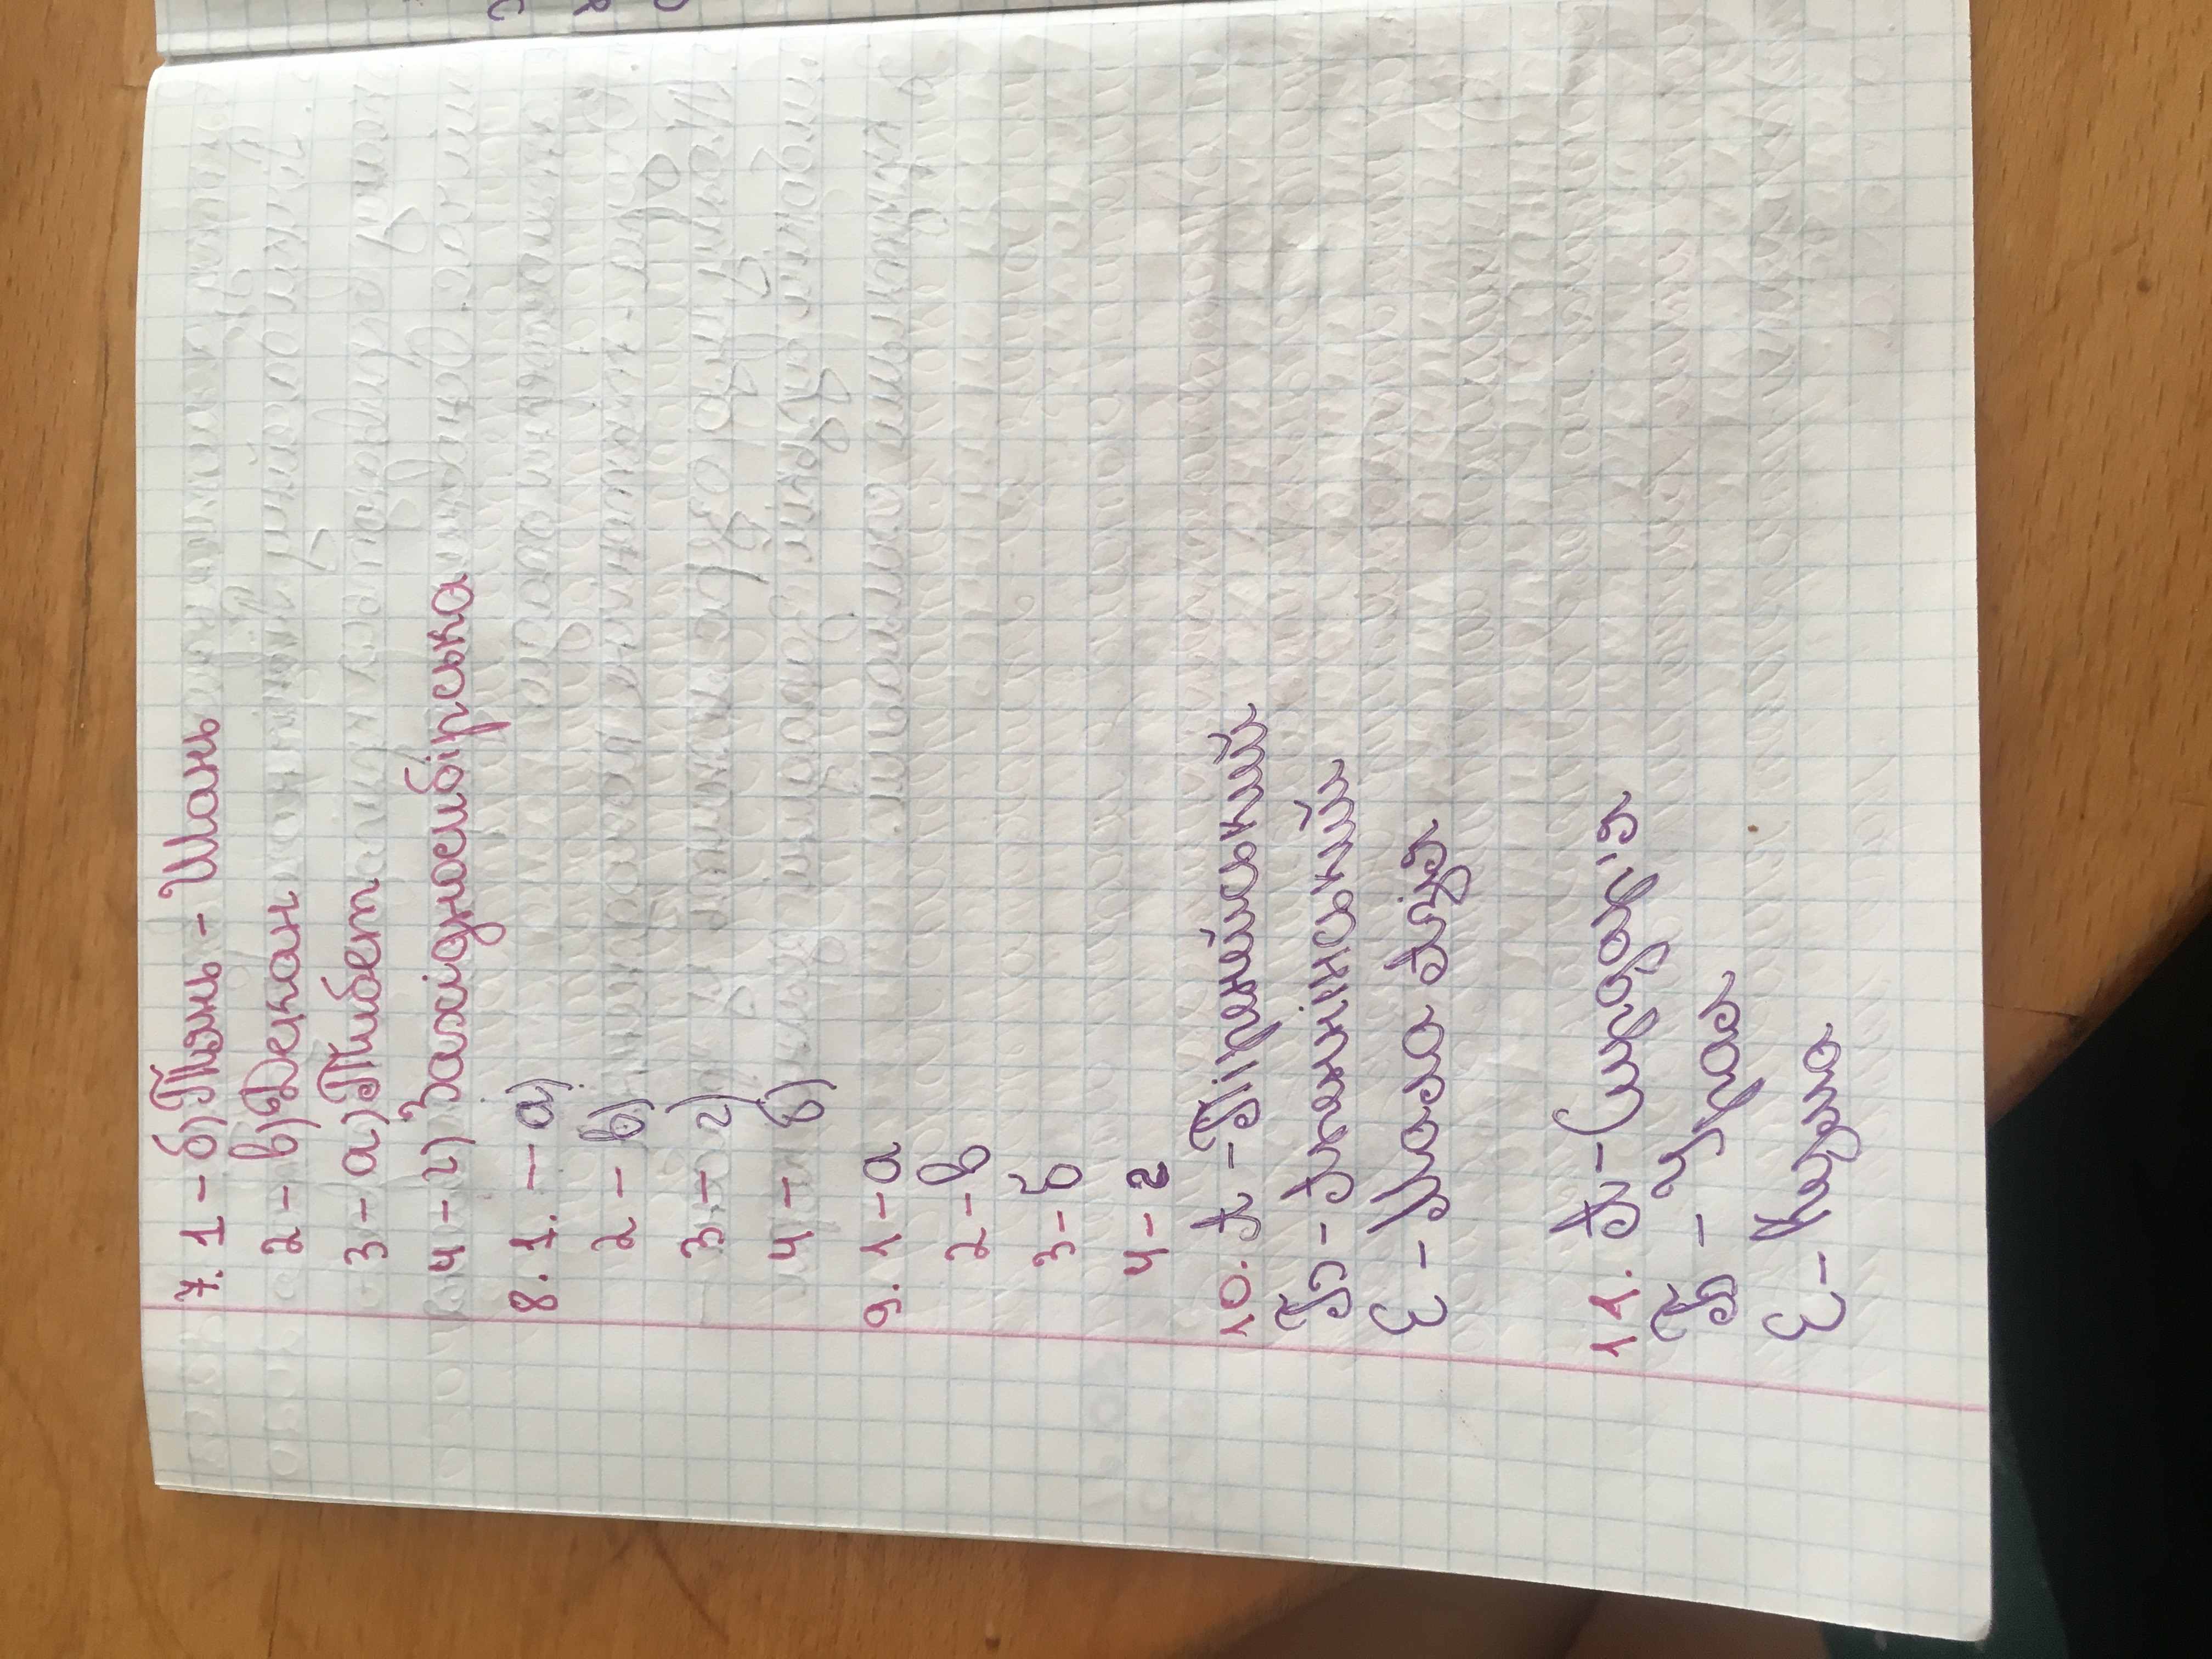 7. 1 - б) Тянь - Шань
2 - в) Декан
3 - а) Тибет
4 - г) Західносибірська
8. 1. - а)
2 - в)
3 - г)
4 - б)
9. 1 - а
2 - в
3 - б
4 - г
10. А - Піренейський
Б - Апеннінський
Є - Мала Азія
11. А - Сирдар'я
Б - Урал